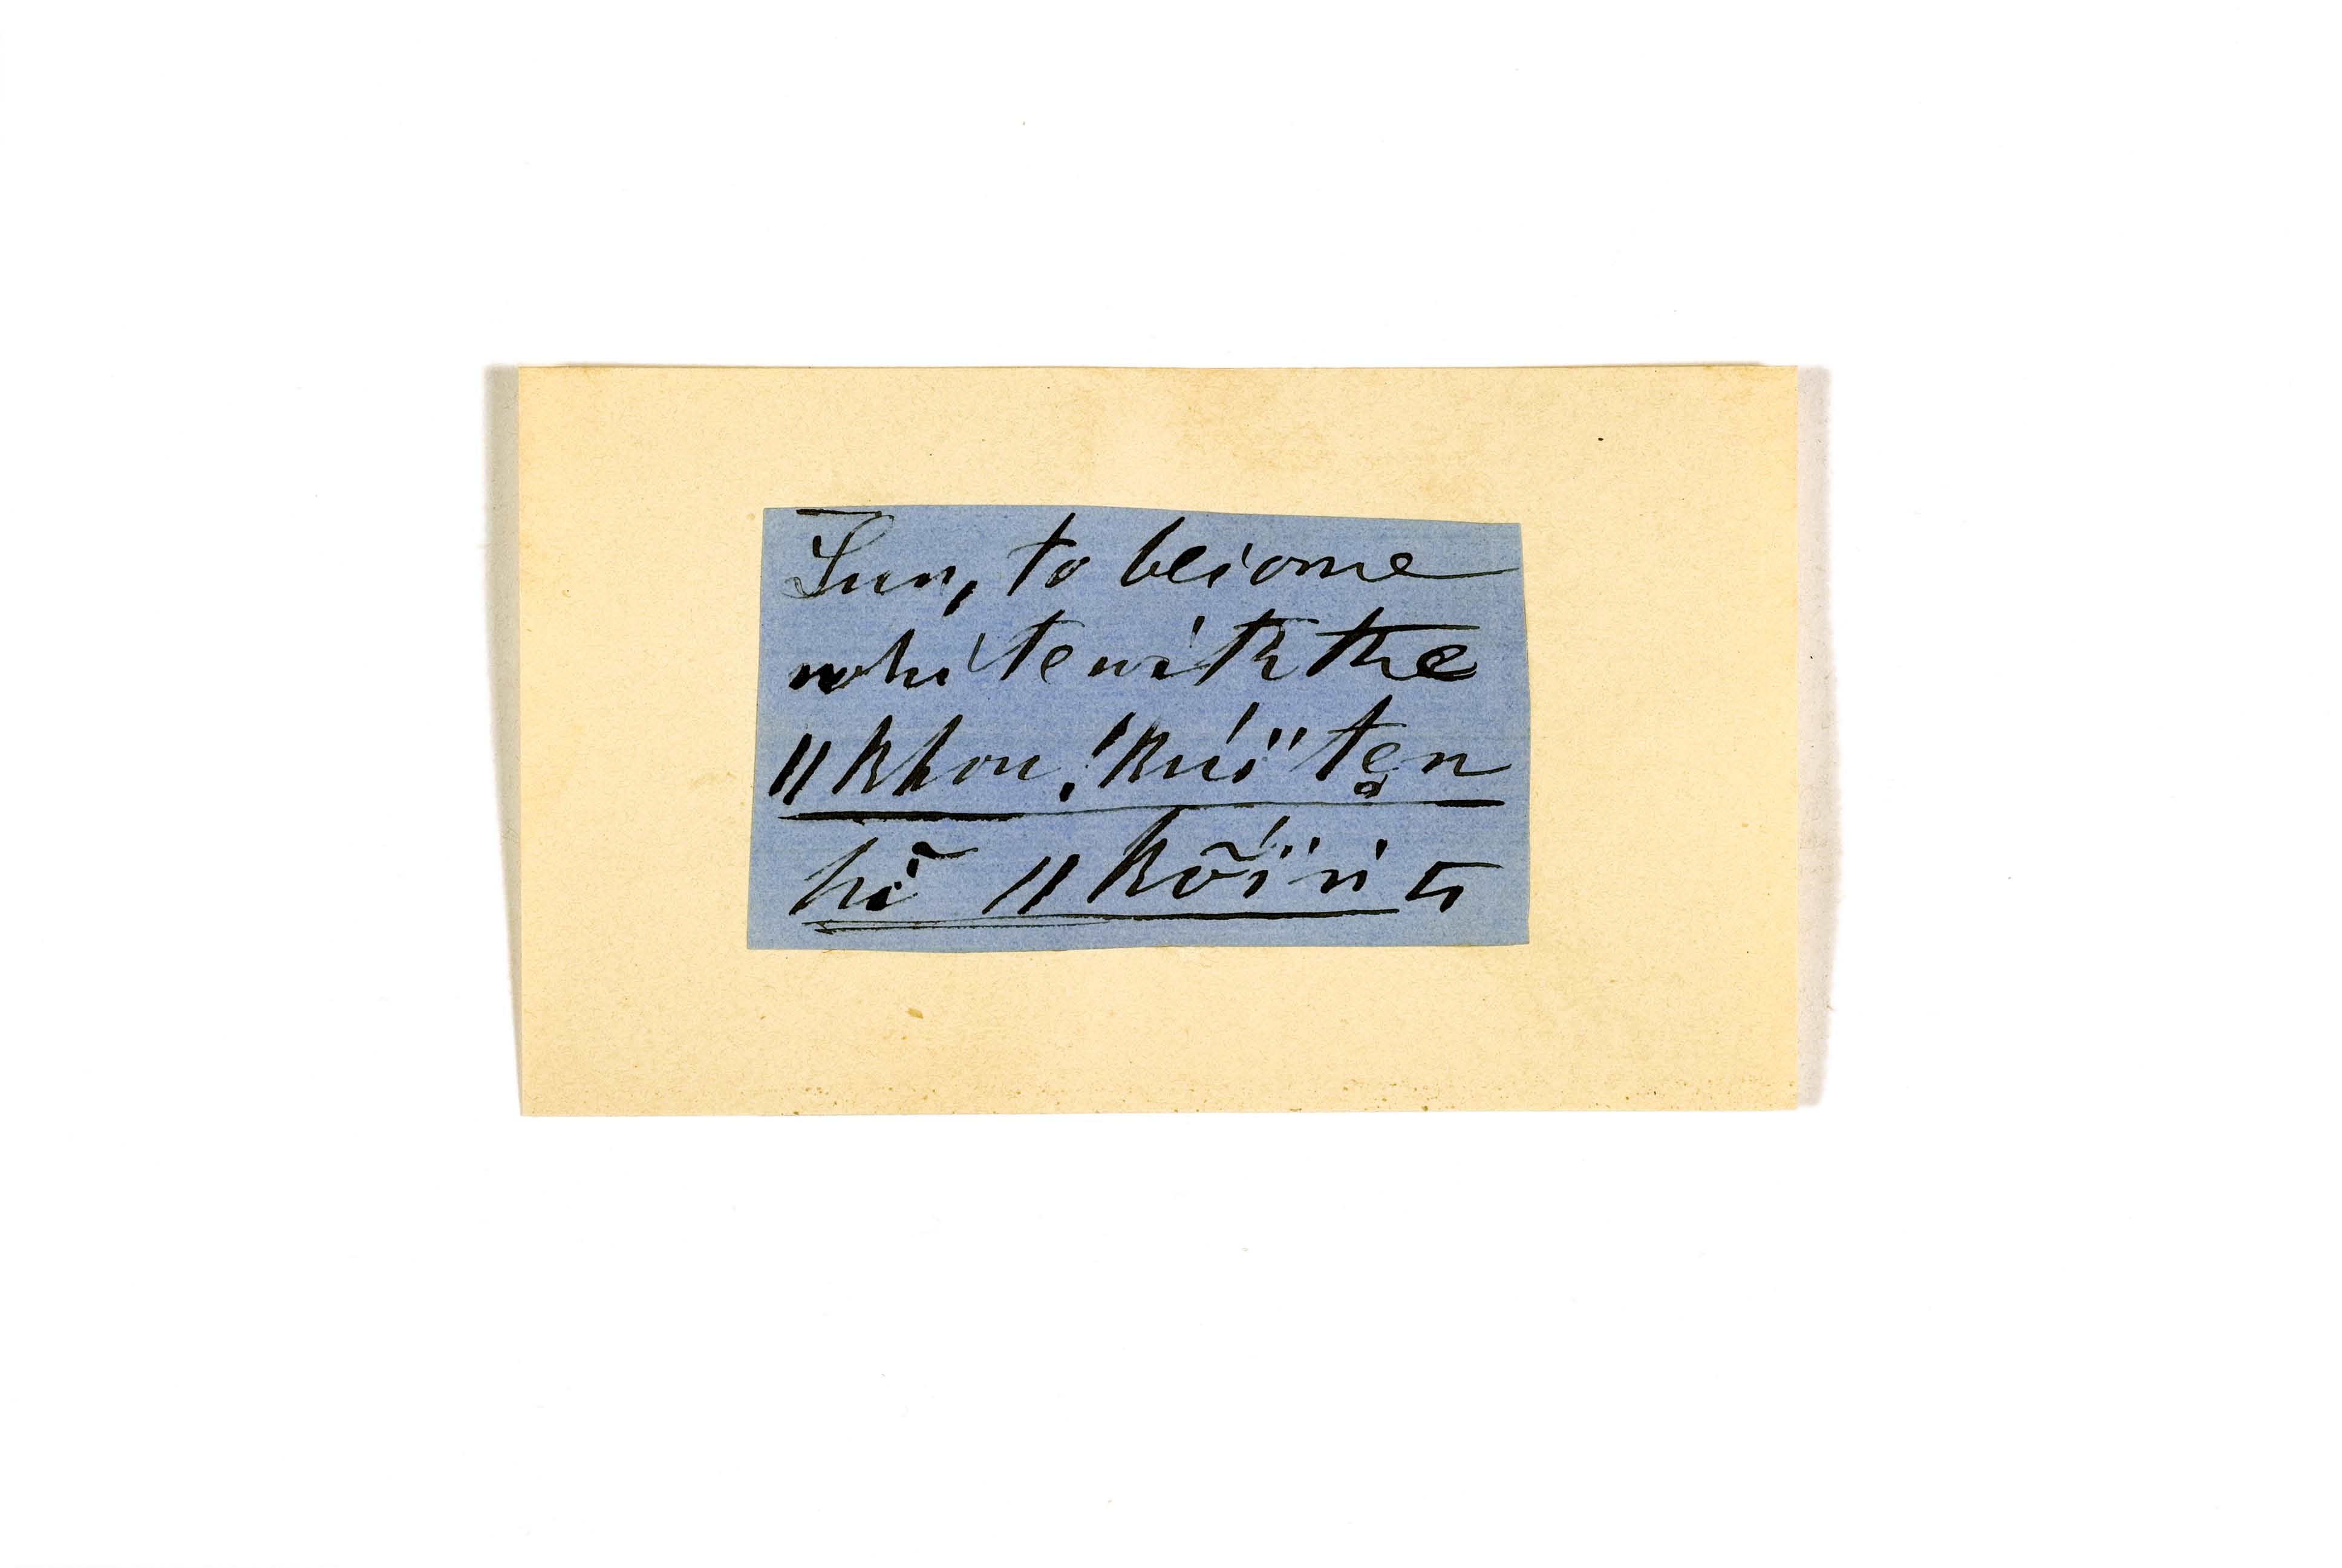 Sun, to become
white with the
ǁkhou, !kuï tẹn
hĩ ǁkõïn ti